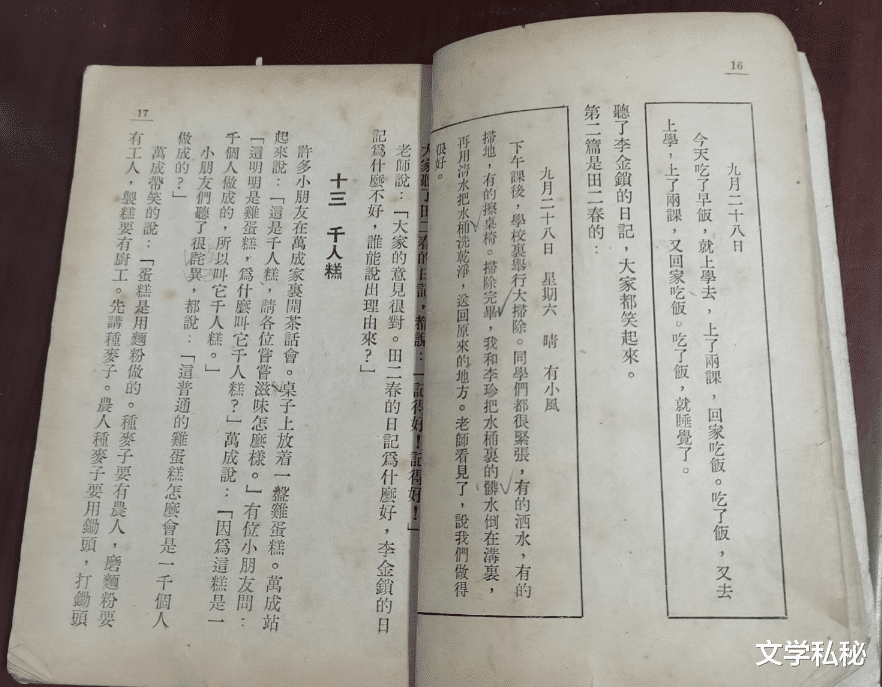 16
九月二十八日
今天吃了早飯，就上學去，上了兩課，回家吃飯。吃了飯，又去
上學，上了兩課，又回家吃飯。吃了飯，就睡覺了。
聽了李金鎖的日記，大家都笑起來。
第二篇是田二春的：
九月二十八日　星期六　晴　有小風
下午課後，學校裏舉行大掃除。同學們都很緊張，有的洒水，有的
掃地，有的擦桌椅。掃除完畢，我和李珍把水桶裏的髒水倒在溝裏，
再用清水把水桶洗乾淨，送回原來的地方。老師看見了，說我們做得
很好。
大家聽了田二春的日記，都說：「記得好！記得好！」
老師說：「大家的意見很對。田二春的日記爲什麼好，李金鎖的日
記爲什麼不好，誰能說出理由來？」
十三　千人糕
許多小朋友在萬成家裏開茶話會。桌子上放着一盤雞蛋糕。萬成站
起來說：「這是千人糕，請各位嘗嘗滋味怎麼樣。」有位小朋友問：
「這明明是雞蛋糕，爲什麼叫它千人糕？」萬成說：「因爲這糕是一
千個人做成的，所以叫它千人糕。」
小朋友們聽了很詫異，都說：「這普通的雞蛋糕怎麼會是一千個人
做成的？」
萬成帶笑的說：「蛋糕是用麵粉做的。種麥子要有農人，磨麵粉要
有工人，製糕要有廚工。先講種麥子。農人種麥子要用鋤頭，打鋤頭
17
文学私秘